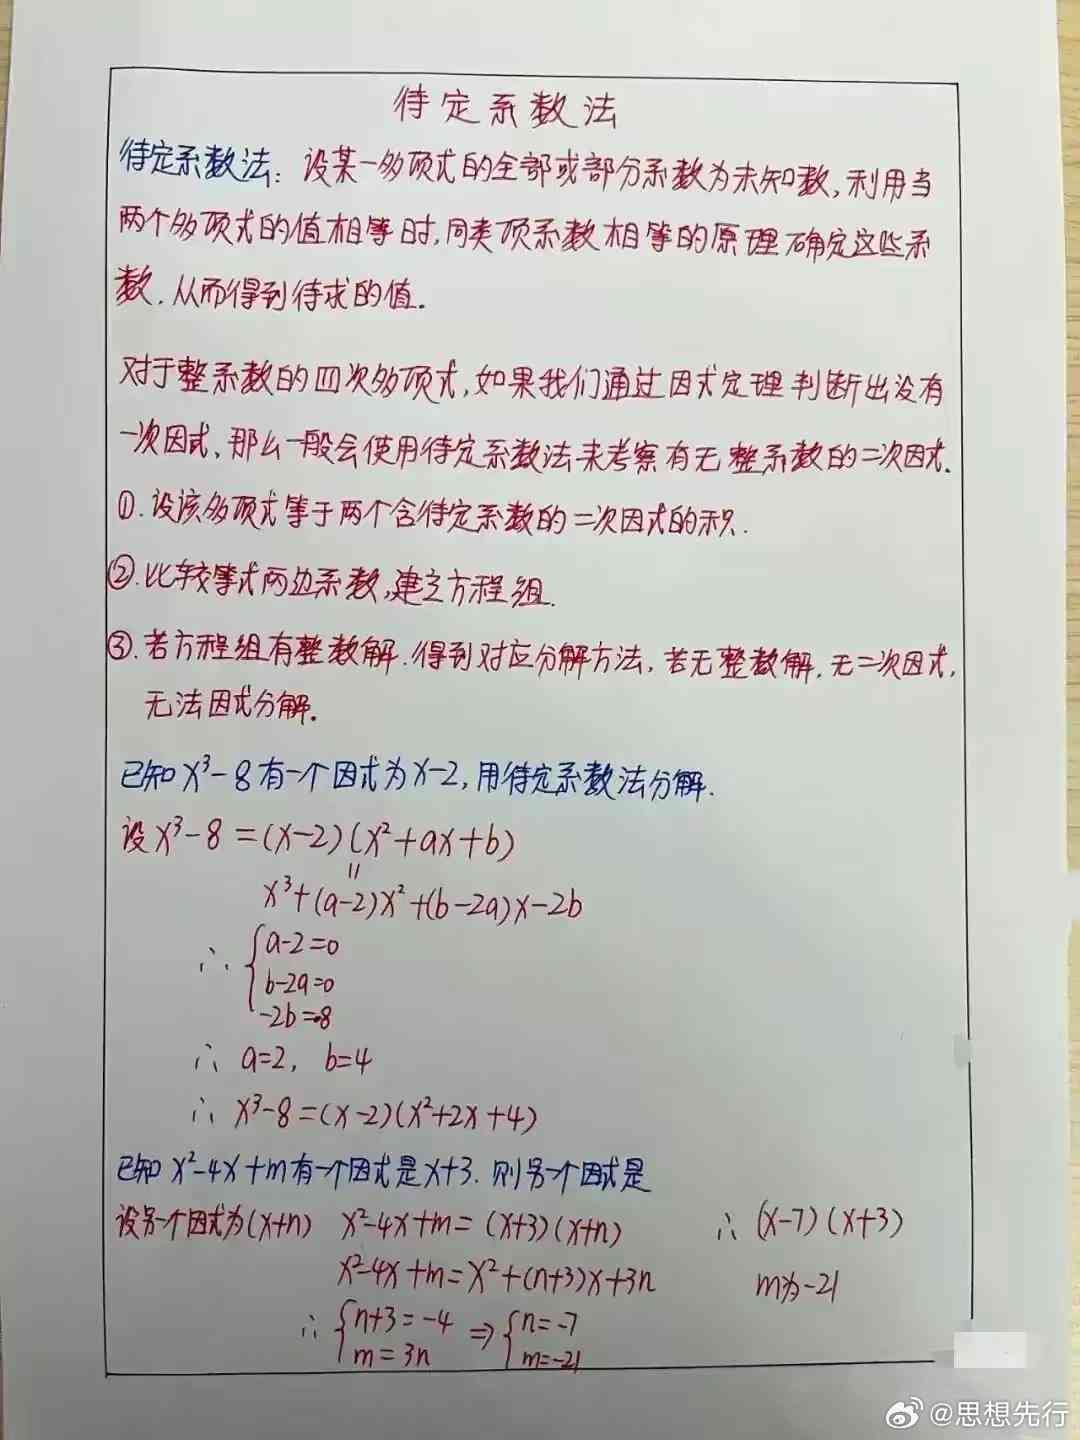 待定系数法
待定系数法：设某一多项式的全部或部分系数为未知数，利用当
两个多项式的值相等时，同类项系数相等的原理确定这些系
数，从而得到待求的值。
对于整系数的四次多项式，如果我们通过因式定理判断出没有
一次因式，那么一般会使用待定系数法来考察有无整系数的二次因式。
①.设该多项式等于两个含待定系数的二次因式的积.
②.比较等式两边系数,建立方程组.
③.若方程组有整数解.得到对应分解方法，若无整数解，无二次因式，
无法因式分解。
已知x³-8有一个因式为x-2,用待定系数法分解.
设x³-8=(x-2)(x²+ax+b)
=
x³+(a-2)x²+(b-2a)x-2b
∴ {a-2=0
b-2a=0
-2b=-8
∴ a=2, b=4
∴ x³-8=(x-2)(x²+2x+4)
已知x²-4x+m有一个因式是x+3.则另一个因式是
设另一个因式为(x+n) x²-4x+m=(x+3)(x+n) ∴ (x-7)(x+3)
x²-4x+m=x²+(n+3)x+3n m为-21
∴ {n+3=-4 ⇒ {n=-7
m=3n m=-21
@思想先行